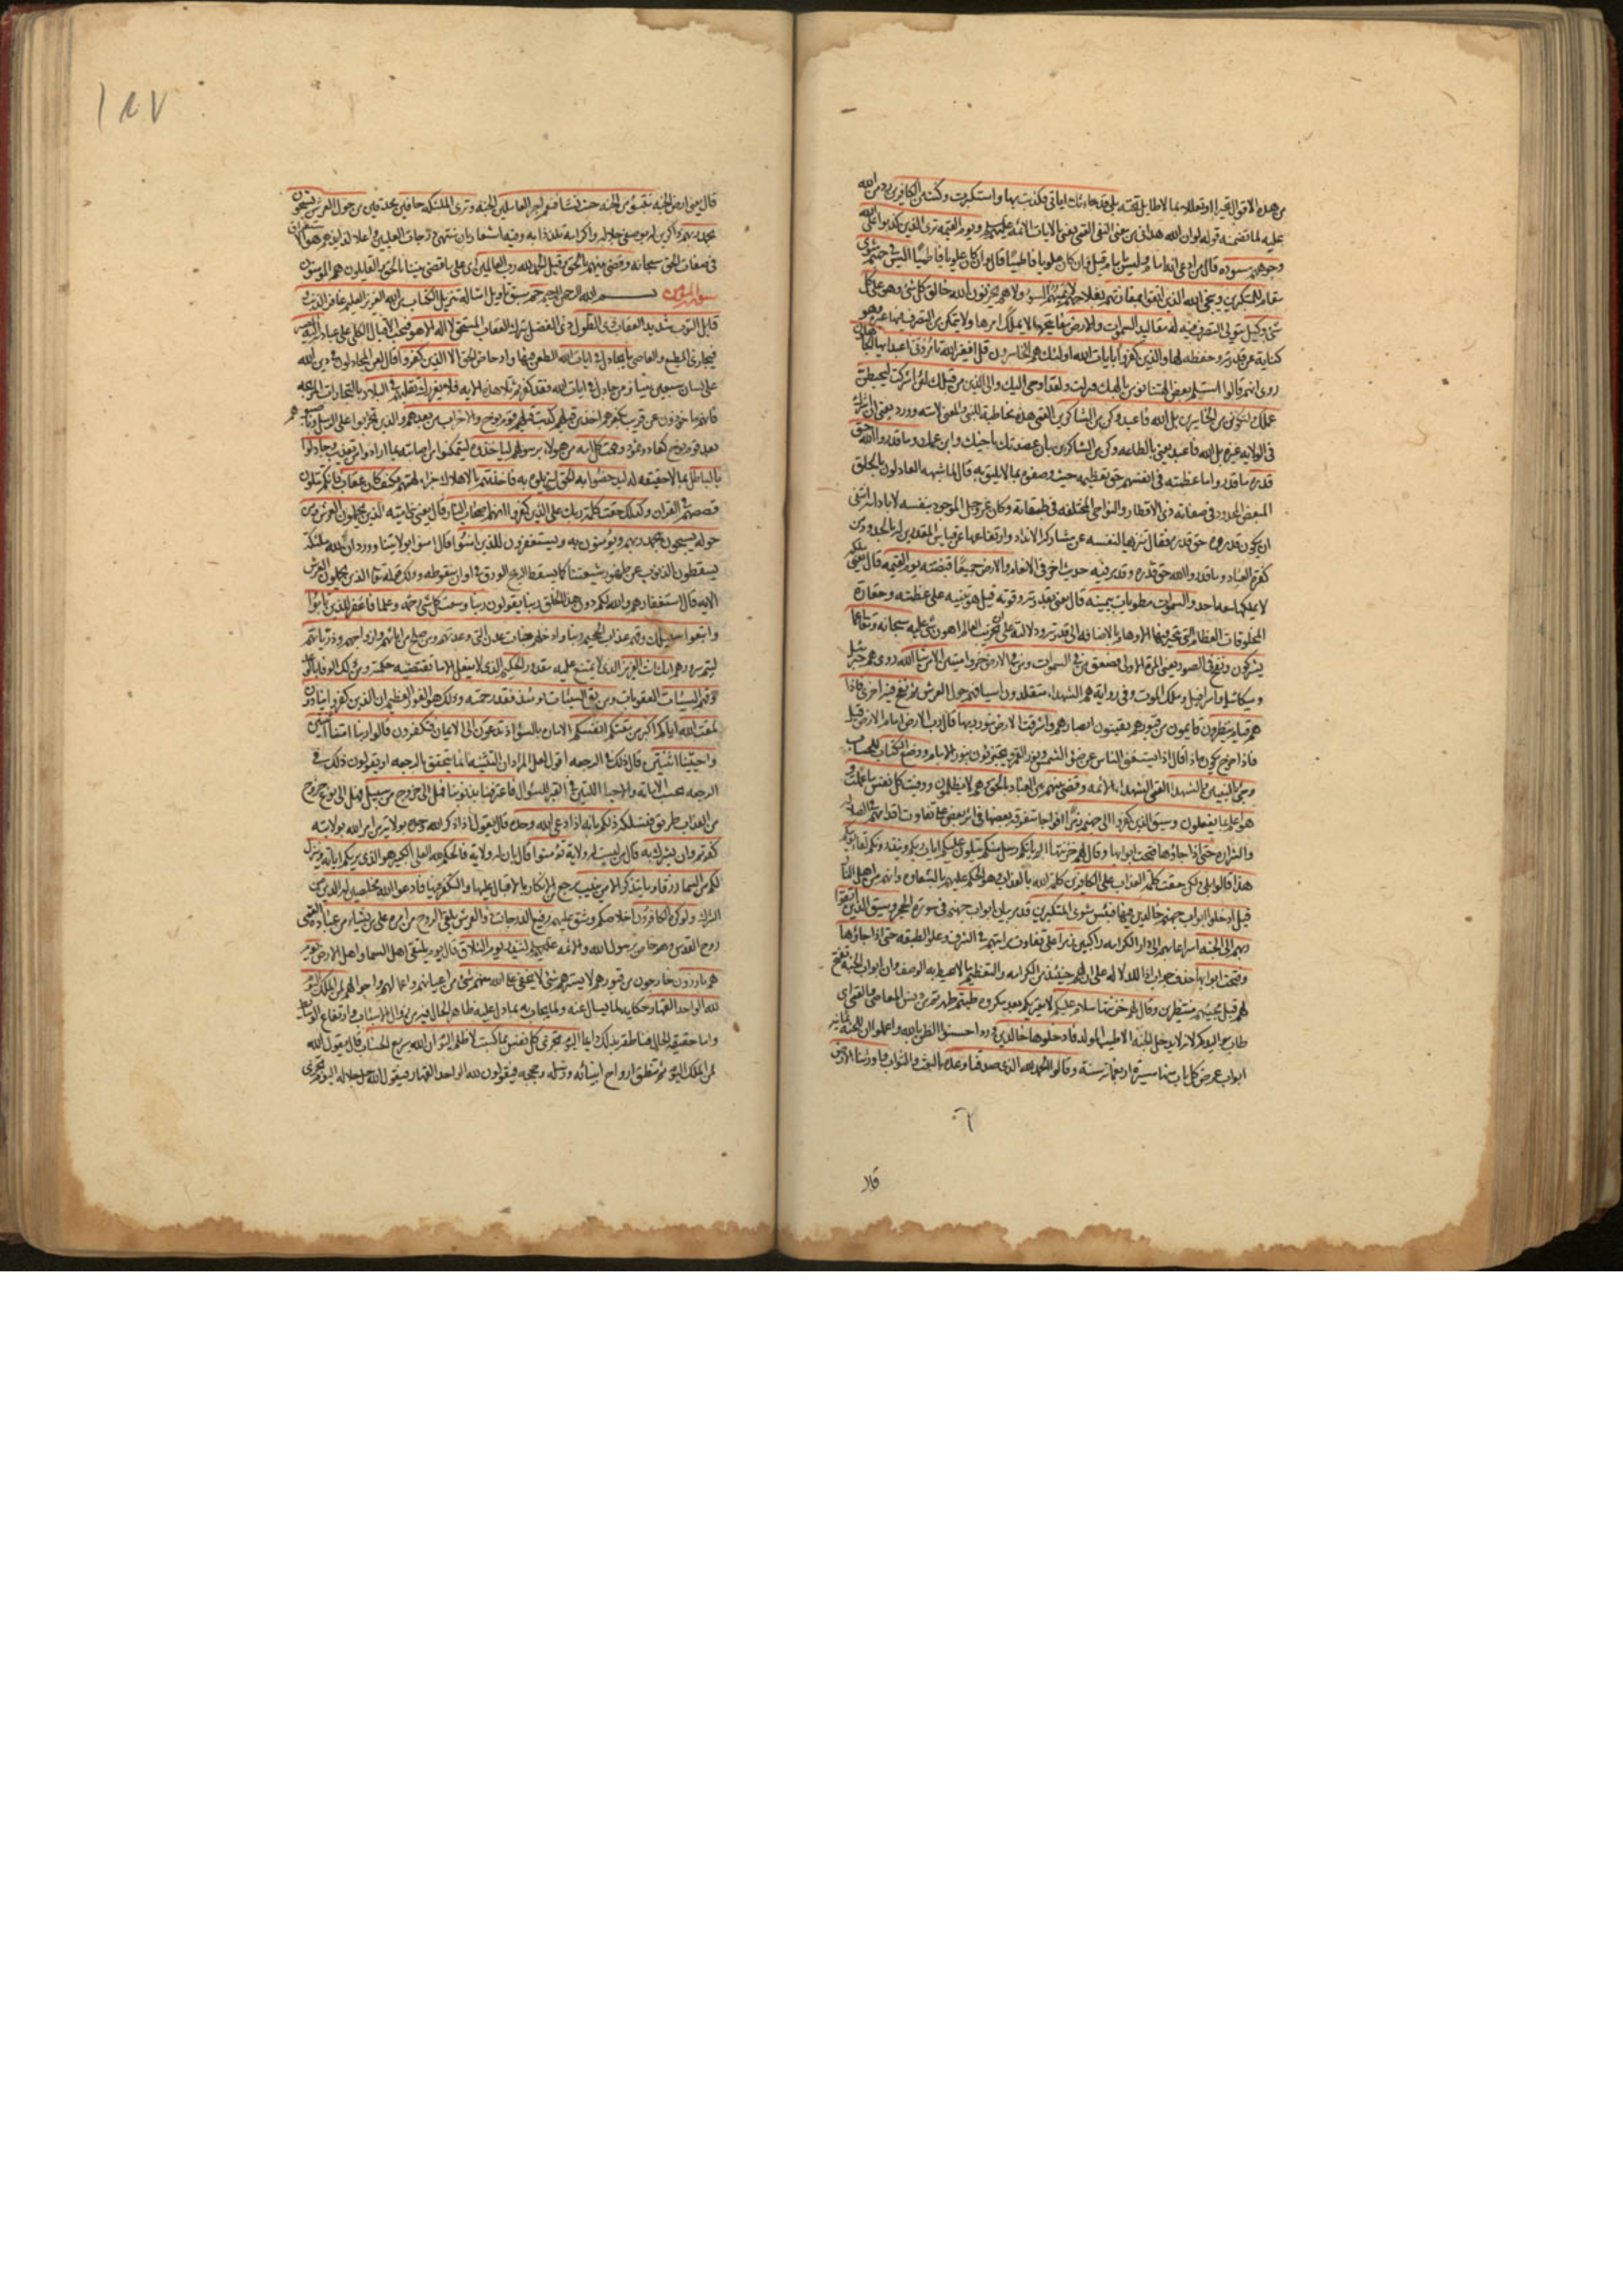 من هذه الاقوال تحيرا او تعللا بما لا طايل تحته بلى قد جاءتك اياتي فكذبت بها واستكبرت وكنت من الكافرين رد من الله
عليه لما تضمنه قوله لو ان الله هداني من معنى النفي القمي يعني بالايات الائمة عليهم السلام ويوم القيمة ترى الذين كذبوا على الله
وجوههم مسودة قال من ادعى انه امام وليس بامام قيل وان كان علويا فاطميا قال وان كان علويا فاطميا اليس في جهنم مثوى
مقام للمتكبرين وينجي الله الذين اتقوا بمفازتهم بفلاحهم لا يمسهم السوء ولا هم يحزنون الله خالق كل شئ وهو على كل
شئ وكيل يتولى التصرف فيه له مقاليد السموات والارض مفاتيحها لا يملك امرها ولا يتمكن من التصرف فيها غيره وهو
كناية عن قدرته وحفظه لها والذين كفروا بايات الله اولئك هم الخاسرون قل افغير الله تامروني اعبد ايها الجاهلون
روى انهم قالوا استلم بعض الهتنا نؤمن بالهك فنزلت ولقد اوحي اليك والى الذين من قبلك لئن اشركت ليحبطن
عملك ولتكونن من الخاسرين بل الله فاعبد وكن من الشاكرين القمي هذه مخاطبة للنبي والمعنى لامته وورد يعني ان اشركت
في الولاية غيره بل الله فاعبد يعني بالطاعة وكن من الشاكرين بان عضدتك باخيك وابن عمك وما قدروا الله حق
قدره ما قدروا ما عظمته في انفسهم حق تعظيمه حيث وصفوه بما لا يليق به قال لما شبهه العادلون بالخلق
المبعض المحدود في صفاته ذي الاقطار والنواحي المختلفة في طبقاته وكان عز وجل الموجود بنفسه لا باداته انتفى
ان يكون قدروه حق قدره فقال تنزيها لنفسه عن مشاركة الانداد وارتفاعها عن قياس المقدرين له بالحدود من
كفرة العباد وما قدروا الله حق قدره وقد مر فيه حديث اخر في الانعام والارض جميعا قبضته يوم القيمة قال يعني ملكه
لا يملكها معه احد والسموات مطويات بيمينه قال يعني بقدرته وقوته قيل هو تنبيه على عظمته وحقارة
المخلوقات العظام التي تتحير فيها الاوهام بالاضافة الى قدرته ودلالة على ان تخريب العالم اهون شئ عليه سبحانه وتعالى عما
يشركون ونفخ في الصور يعني المرة الاولى فصعق من في السموات ومن في الارض خروا ميتين الا من شاء الله روى هم جبرئيل
وميكائيل واسرافيل وملك الموت وفي رواية هم الشهداء متقلدون اسيافهم حول العرش ثم نفخ فيه اخرى فاذا
هم قيام ينظرون قايمون من قبورهم يقلبون ابصارهم واشرقت الارض بنور ربها قال رب الارض امام الارض قيل
فاذا خرج يكون ماذا قال اذا يستغني الناس عن ضوء الشمس ونور القمر ويجتزئون بنور الامام ووضع الكتاب للحساب
وجئ بالنبيين والشهداء القمي الشهداء الائمة وقضي بينهم بين العباد بالحق وهم لا يظلمون ووفيت كل نفس ما عملت و
هو اعلم بما يفعلون وسيق الذين كفروا الى جهنم زمرا افواجا متفرقة بعضها في اثر بعض على تفاوت اقدامهم في الضلالة
والشرارة حتى اذا جاؤها فتحت ابوابها وقال لهم خزنتها الم ياتكم رسل منكم يتلون عليكم ايات ربكم وينذرونكم لقاء يومكم
هذا قالوا بلى ولكن حقت كلمة العذاب على الكافرين كلمة الله بالعذاب وهو الحكم عليهم بالشقاوة وانهم من اهل النار
قيل ادخلوا ابواب جهنم خالدين فيها فبئس مثوى المتكبرين قد مر بيان ابواب جهنم في سورة الحجر وسيق الذين اتقوا
ربهم الى الجنة اسراعا بهم الى دار الكرامة راكبين زمرا على تفاوت مراتبهم في الشرف وعلو الطبقة حتى اذا جاؤها
وفتحت ابوابها حذف جواب اذا للدلالة على ان لهم حينئذ من الكرامة والتعظيم ما لا يحيط به الوصف وان ابواب الجنة تفتح
لهم قبل مجيئهم منتظرين وقال لهم خزنتها سلام عليكم لا يعتريكم بعد مكروه طبتم طهرتم من دنس المعاصي والقمي اي
طاب مواليدكم لانه لا يدخل الجنة الا طيب المولد فادخلوها خالدين ورد احسنوا الظن بالله واعلموا ان للجنة ثمانية
ابواب عرض كل باب منها مسيرة اربعمائة سنة وقالوا الحمد لله الذي صدقنا وعده بالبعث والثواب واورثنا الارض
قال
١٤٧
قال يعني ارض الجنة نتبوؤ من الجنة حيث نشاء فنعم اجر العاملين الجنة وترى الملئكة حافين محدقين من حول العرش يسبحون
بحمد ربهم ذاكرين له بوصفي جلاله واكرامه تلذذا به وفيه اشعار بان منتهى درجات العليين واعلا لذايذهم هو الاستغراق
في صفات الحق سبحانه وقضي بينهم بالحق وقيل الحمد لله رب العالمين اي على ما قضى بيننا بالحق والقايلون هم المومنون
سورة المؤمن بسم الله الرحمن الرحيم حم سبق تاويله امثاله تنزيل الكتاب من الله العزيز العليم غافر الذنب و
قابل التوب شديد العقاب ذي الطول ذي الفضل بترك العقاب المستحق لا اله الا هو فيجب الاقبال الكلي على عبادته اليه المصير
فيجازي المطيع والعاصي ما يجادل في ايات الله بالطعن فيها وادحاض الحق الا الذين كفروا قال لعن المجادلون في دين الله
على لسان سبعين نبيا ومن جادل في ايات الله فقد كفر ثم تلا هذه الاية فلا يغررك تقلبهم في البلاد بالتجارات المربحة
فانهم ماخوذون عن قريب بكفرهم اخذ من قبلهم كذبت قبلهم قوم نوح والاحزاب من بعدهم والذين تحزبوا على الرسل وناصبوهم
بعد قوم نوح كعاد وثمود وهمت كل امة من هؤلاء برسولهم لياخذوه ليتمكنوا من اصابته بما ارادوا من تعذيب وجادلوا
بالباطل بما لا حقيقة له ليدحضوا به الحق ليزيلوه به فاخذتهم بالاهلاك جزاء لهمهم فكيف كان عقاب فانكم تتلون
قصصهم في القران وكذلك حقت كلمة ربك على الذين كفروا انهم اصحاب النار قال يعني بني امية الذين يحملون العرش ومن
حوله يسبحون بحمد ربهم ويؤمنون به ويستغفرون للذين امنوا قال امنوا بولايتنا وورد ان لله ملئكة
يسقطون الذنوب عن ظهور شيعتنا كما يسقط الريح الورق في اوان سقوطه وذلك قوله تعالى الذين يحملون العرش
الاية قال استغفارهم والله لكم دون هذا الخلق ربنا يقولون ربنا وسعت كل شئ رحمة وعلما فاغفر للذين تابوا
واتبعوا سبيلك وقهم عذاب الجحيم ربنا وادخلهم جنات عدن التي وعدتهم ومن صلح من ابائهم وازواجهم وذرياتهم
ليتم سرورهم انك انت العزيز الذي لا يمتنع عليه مقدور الحكيم الذي لا يفعل الا ما تقتضيه حكمته ومن ذلك الوفاء بالوعد
وقهم السيئات العقوبات ومن تق السيئات يومئذ فقد رحمته وذلك هو الفوز العظيم ان الذين كفروا ينادون
لمقت الله اياكم اكبر من مقتكم انفسكم الامارة بالسوء اذ تدعون الى الايمان فتكفرون قالوا ربنا امتنا اثنتين
واحييتنا اثنتين قال ذلك في الرجعة اقول لعل المراد ان التثنية انما يتحقق بالرجعة او يقولون ذلك في
الرجعة بحسب الاماتة والاحياء اللتين في القبر للسؤال فاعترفنا بذنوبنا فهل الى خروج من سبيل فهل الى نوع خروج
من العذاب طريق فنسلكه ذلكم بانه اذا دعي الله وحده قال يقول اذا ذكر الله وحده بولاية من امر الله بولايته
كفرتم وان يشرك به قال من ليست له ولاية تؤمنوا قال بان له ولاية فالحكم لله العلي الكبير هو الذي يريكم اياته وينزل
لكم من السماء رزقا وما يتذكر الا من ينيب يرجع عن الانكار بالاقبال عليها والتفكر فيها فادعوا الله مخلصين له الدين من
الشرك ولو كره الكافرون اخلاصكم وشق عليهم رفيع الدرجات ذو العرش يلقي الروح من امره على من يشاء من عباده القمي
روح القدس وهو خاص برسول الله والائمة عليهم السلام لينذر يوم التلاق قال يوم يلتقي اهل السماء واهل الارض يوم
هم بارزون خارجون من قبورهم لا يسترهم شئ لا يخفى على الله منهم شئ من اعيانهم واعمالهم واحوالهم لمن الملك اليوم
لله الواحد القهار حكاية لما يسال عنه ولما يجاب به بما دل عليه ظاهر الحال فيه من زوال الاسباب وارتفاع الوسائط
واما حقيقة الحال فناطقة بذلك دايما اليوم تجزى كل نفس بما كسبت لا ظلم اليوم ان الله سريع الحساب قال يقول الله
لمن الملك اليوم ثم تنطق ارواح انبيائه ورسله وحججه فيقولون لله الواحد القهار فيقول الله جل جلاله اليوم تجزى